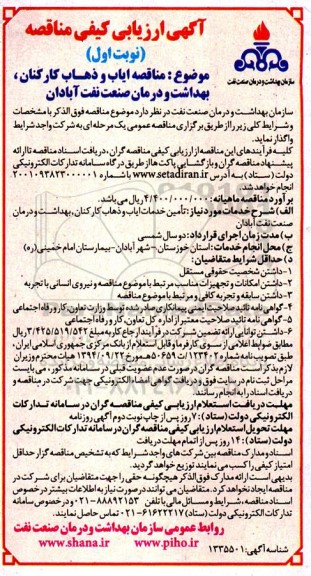 آگهی ارزیابی کیفی مناقصه
(نوبت اول)
موضوع : مناقصه ایاب و ذهاب کارکنان ،
بهداشت و درمان صنعت نفت آبادان
سازمان بهداشت و درمان صنعت نفت
سازمان بهداشت و درمان صنعت نفت در نظر دارد موضوع مناقصه فوق الذکر با مشخصات
و شرایط کلی زیر را از طریق برگزاری مناقصه عمومی یک مرحله ای به شرکت واجد شرایط
واگذار نماید.
کلیه فرآیندهای این مناقصه از ارزیابی کیفی مناقصه گران ، دریافت اسناد مناقصه تا ارائه
پیشنهاد مناقصه گران و بازگشایی پاکت ها از طریق درگاه سامانه تدارکات الکترونیکی
دولت (ستاد) به آدرس www.setadiran.ir با شماره ۲۰۰۱۰۹۳۸۲۳۰۰۰۰۰۱
انجام خواهد شد.
برآورد مناقصه ماهیانه: ۴/۴۰۰/۰۰۰/۰۰۰ ریال می باشد.
الف) شرح خدمات مورد نیاز : تأمین خدمات ایاب و ذهاب کارکنان ، بهداشت و درمان
صنعت نفت آبادان
ب) مدت زمان اجرای قرارداد: دو سال شمسی
ج) محل انجام خدمات: استان خوزستان - شهر آبادان - بیمارستان امام خمینی (ره)
د) حداقل شرایط متقاضیان:
۱- داشتن شخصیت حقوقی مستقل
۲- داشتن امکانات و تجهیزات مناسب مرتبط با موضوع مناقصه و نیروی انسانی با تجربه
۳- داشتن سابقه و تجربه کافی و مرتبط با موضوع مناقصه
۴- گواهی نامه تائید صلاحیت ایمنی پیمانکاری صادر شده توسط وزارت تعاون، کار و رفاه اجتماعی
۵- گواهی نامه تائید صلاحیت معتبر از اداره کل تعاون، کار و رفاه اجتماعی
۶- داشتن توانایی ارائه تضمین شرکت در فرآیند ارجاع کار به مبلغ ۳/۴۲۵/۵۱۹/۵۴۲ ریال
مطابق ضوابط اعلامی از سوی کارفرما و قابل استعلام از بانک مرکزی جمهوری اسلامی ایران ،
طبق تصویب نامه شماره ۱۲۳۴۰۲/ت۵۰۶۵۹ه مورخ ۱۳۹۴/۰۹/۲۲ هیات محترم وزیران
لازم بذکر است مناقصه گران در صورت عدم عضویت قبلی در سامانه مذکور ، می بایست
مراحل ثبت نام در سایت فوق و دریافت گواهی امضاء الکترونیکی جهت شرکت در مناقصه و
دریافت اسناد را به انجام رسانند.
مهلت دریافت استعلام ارزیابی کیفی مناقصه گران در سامانه تدارکات
الکترونیکی دولت (ستاد): ۷ روز پس از چاپ نوبت دوم آگهی روزنامه
مهلت تحویل استعلام ارزیابی کیفی مناقصه گران در سامانه تدارکات الکترونیکی
دولت (ستاد): ۱۴ روز پس از اتمام مهلت دریافت
اسناد و مدارک مناقصه بین شرکت های واجد شرایط که به تشخیص مناقصه گزار حداقل
امتیاز کیفی را کسب می نمایند توزیع خواهد گردید.
بدیهی است ارائه مدارک فوق الذکر هیچگونه حقی را جهت متقاضیان برای شرکت در
مناقصه ایجاد نخواهد کرد. متقاضیان می توانند در صورت نیاز به اطلاعات بیشتر در خصوص
اسناد مناقصه ، شرایط و مسائل مالی با تلفن ۸۸۸۹۲۱۵۳-۰۲۱ و در خصوص سامانه
تدارکات الکترونیکی دولت (ستاد) ۶۱۶۲۲۲۱۷-۰۲۱ تماس حاصل نمایند.
روابط عمومی سازمان بهداشت و درمان صنعت نفت
www.shana.ir www.piho.ir
شناسه آگهی: ۱۳۳۵۵۰۱